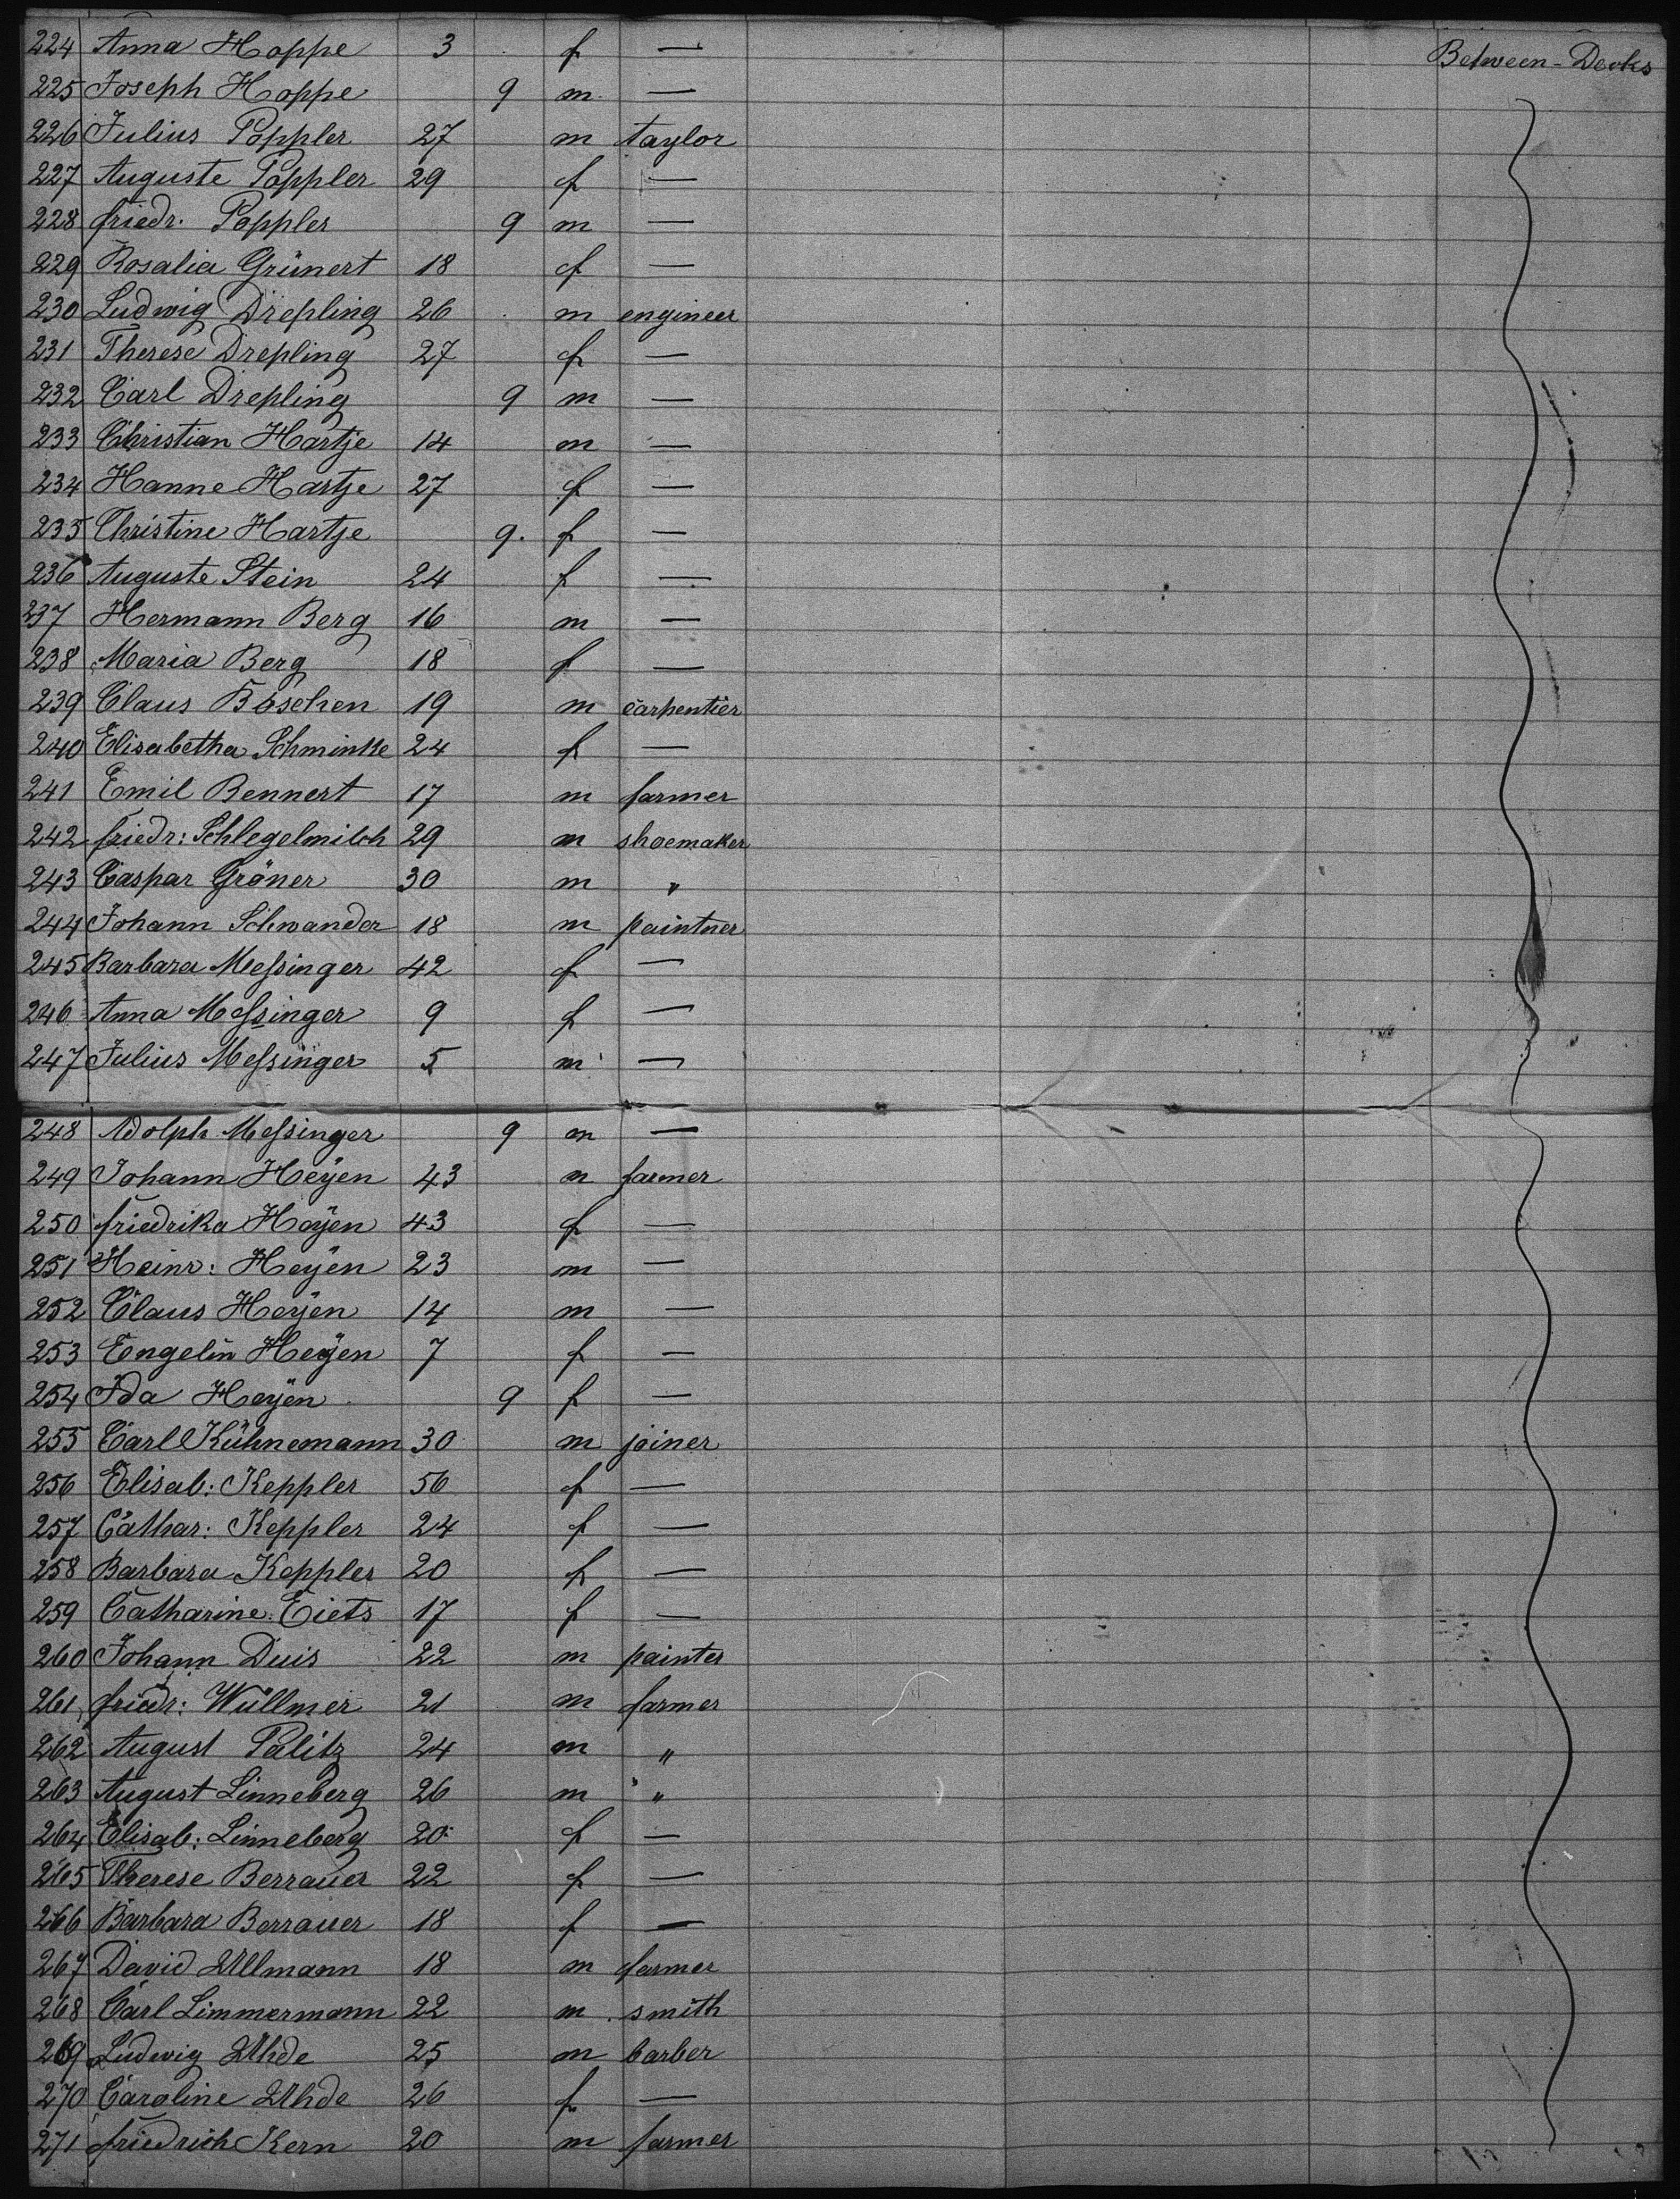 224 Anna Hoppe 3 f — Between-Decks
225 Joseph Hoppe 9 m —
226 Julius Poppler 27 m taylor
227 Auguste Poppler 29 f —
228 friedr. Poppler 9 m —
229 Rosalia Grünert 18 f —
230 Ludwig Drepling 26 m engineer
231 Therese Drepling 27 f —
232 Carl Drepling 9 m —
233 Christian Hartje 14 m —
234 Hanne Hartje 27 f —
235 Christine Hartje 9. f —
236 Auguste Stein 24 f —
237 Hermann Berg 16 m —
238 Maria Berg 18 f —
239 Claus Böschen 19 m carpentier
240 Elisabetha Schminke 24 f —
241 Emil Bennert 17 m farmer
242 friedr: Schlegelmilch 29 m shoemaker
243 Caspar Gröner 30 m "
244 Johann Schwander 18 m paintner
245 Barbara Meſsinger 42 f —
246 Anna Meſsinger 9 f —
247 Julius Meſsinger 5 m —
248 Adolph Meſsinger 9 m —
249 Johann Heÿen 43 m farmer
250 friedrika Heÿen 43 f —
251 Heinr: Heÿen 23 m —
252 Claus Heÿen 14 m —
253 Engelin Heÿen 7 f —
254 Ida Heÿen 9 f —
255 Carl Kühnemann 30 m joiner
256 Elisab: Keppler 56 f —
257 Cathar: Keppler 24 f —
258 Barbara Keppler 20 f —
259 Catharine Eiets 17 f —
260 Johann Duis 22 m painter
261 friedr: Wüllmer 21 m farmer
262 August Palitz 24 m "
263 August Linneberg 26 m "
264 Elisab: Linneberg 20 f —
265 Therese Berrauer 22 f —
266 Barbara Berrauer 18 f —
267 David Ullmann 18 m farmer
268 Carl Limmermann 22 m smith
269 Ludwig Uhde 25 m barber
270 Caroline Uhde 26 f —
271 friedrich Kern 20 m farmer